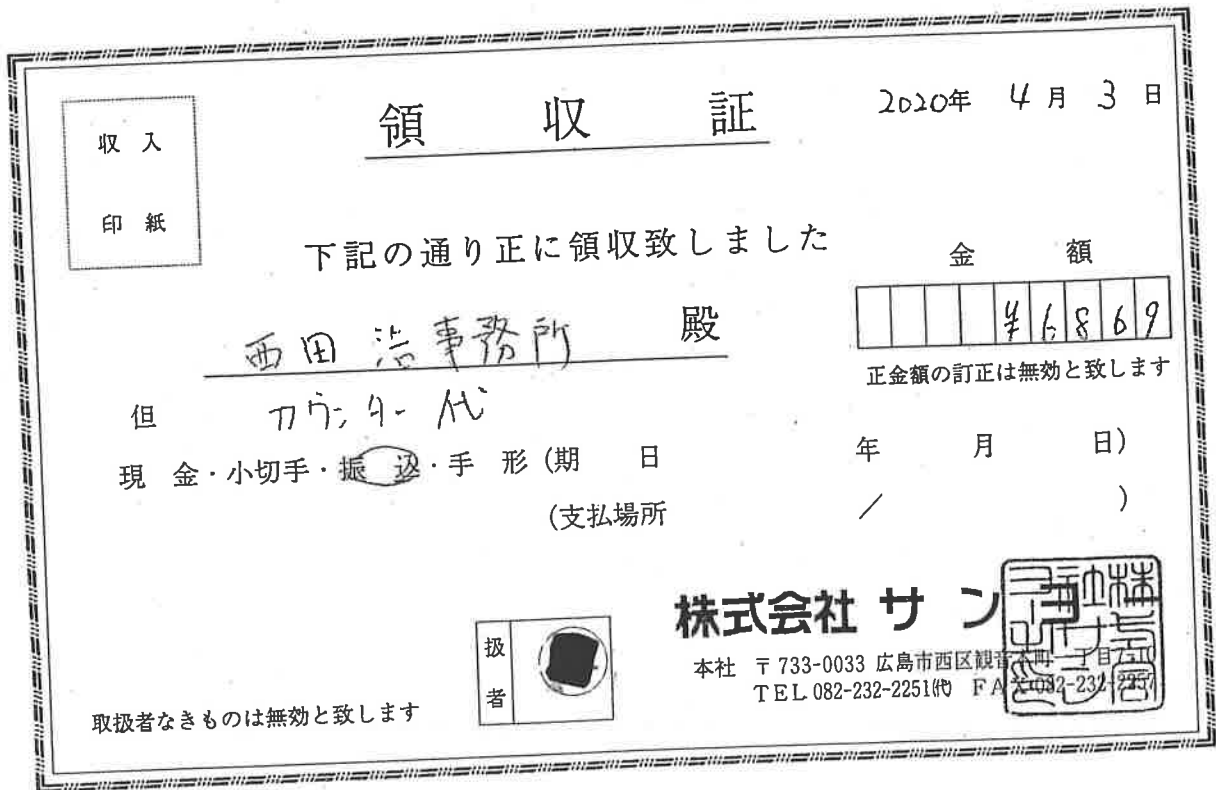 収入
印紙
領収証
2020年 4月 3日
下記の通り正に領収致しました
金額
¥6869
正金額の訂正は無効と致します
西田浩事務所 殿
但 カウンター代
現金・小切手・振込・手形(期日 年 月 日)
(支払場所 / )
株式会社サンヨ
本社 〒733-0033 広島市西区観音本町一丁目
TEL 082-232-2251㈹ FAX 082-232-2257
扱者
取扱者なきものは無効と致します